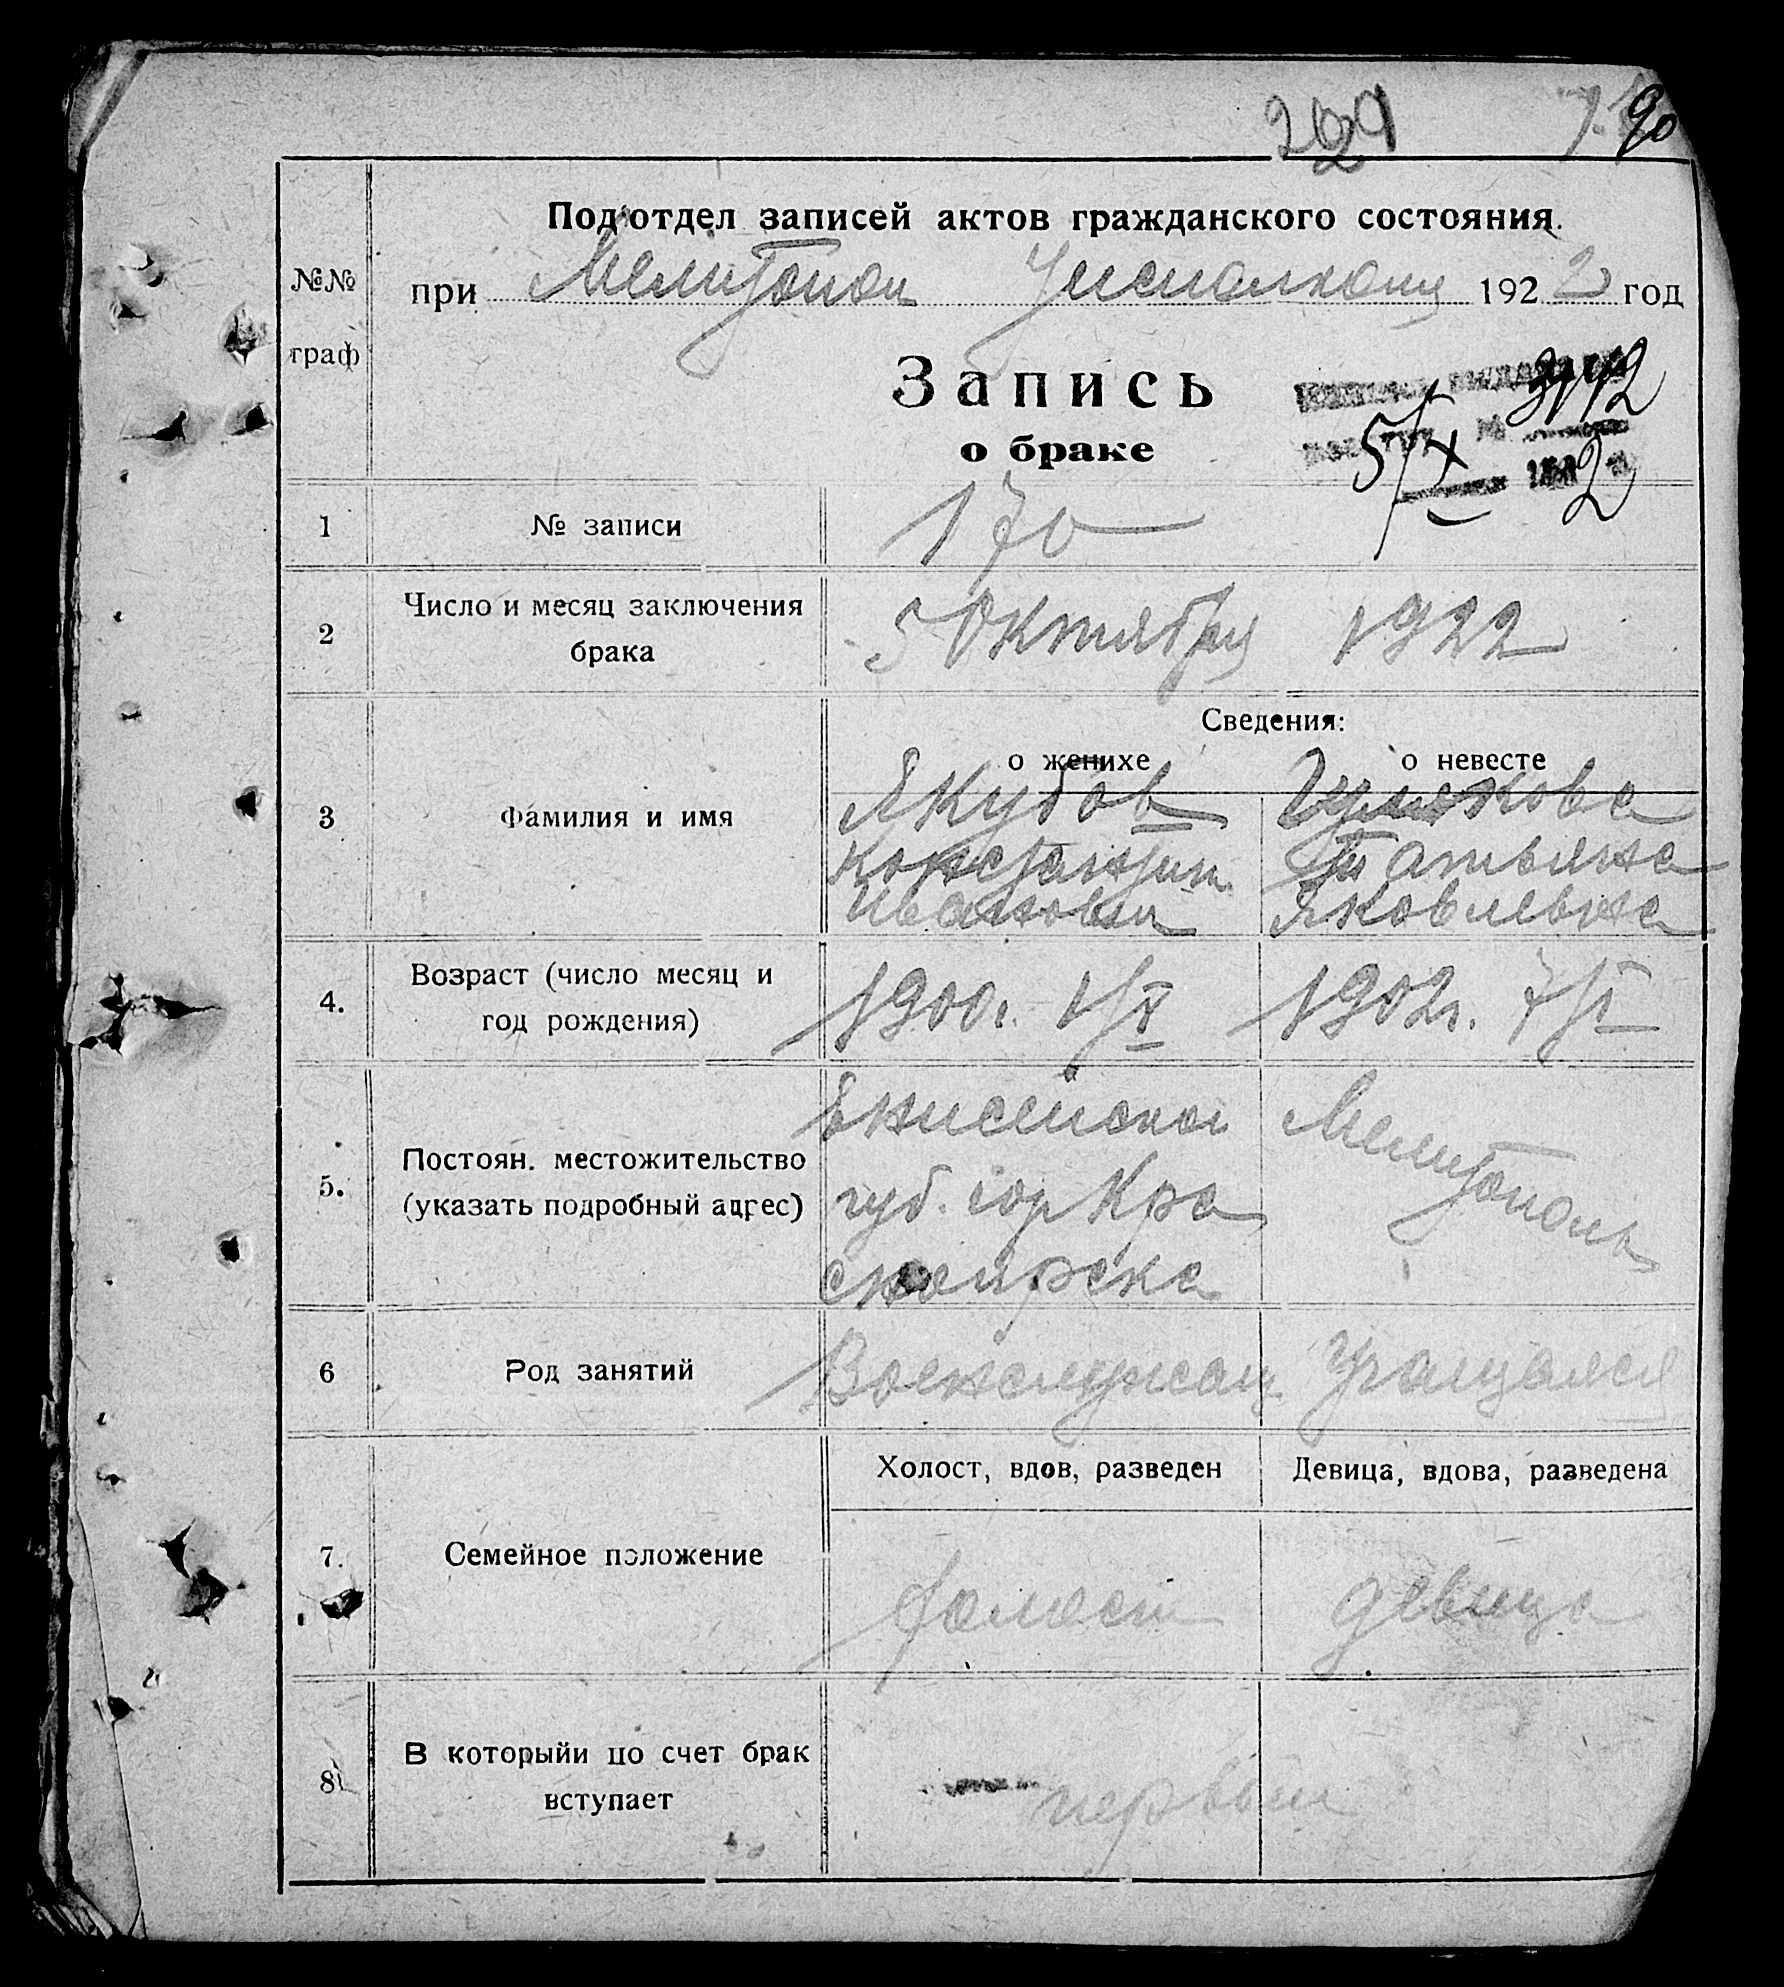 90
Подотдел записей актов гражданского состояния.
№№ граф
при Мелитопол Уисполкоме 1922 год
Запись
о браке
3112
5/X 2
1 № записи 170
2 Число и месяц заключения брака 5 Октября 1922
Сведения:
о женихе о невесте
3 Фамилия и имя
Якубов
Константин
Иванович
Татьяна
Яковлевна
4. Возраст (число месяц и год рождения)
1900г. 1902г. 7/I
5. Постоян. местожительство (указать подробный адрес)
Енисейской
губ. гор Кра
сноярска
Мелитополь
6 Род занятий Военслужащ Учащаяся
Холост, вдов, разведен Девица, вдова, разведена
7. Семейное положение холост девица
8 В которыйи по счет брак вступает первый